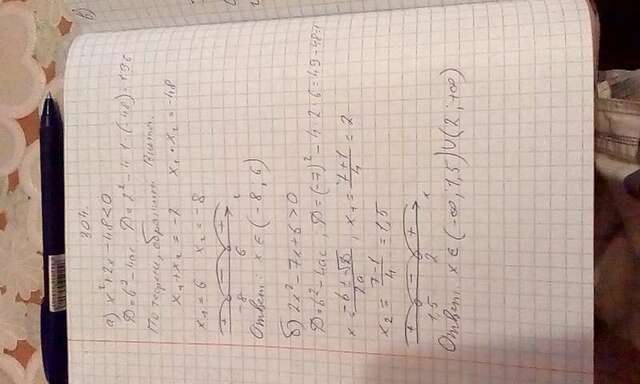 304.
а) x²+2x-48<0
D=b²-4ac D=2²-4·1·(-48)=196
По теореме, обратной Виета
x₁+x₂=-2 x₁·x₂=-48
x₁=6 x₂=-8
+ - +
-8 6 x
Ответ: x∈(-8; 6)
б) 2x²-7x+6>0
D=b²-4ac, D=(-7)²-4·2·6=49-48=1
x=(-b±√D)/2a, x₁=(7+1)/4=2
x₂=(7-1)/4=1,5
+ - +
1,5 2 x
Ответ: x∈(-∞; 1,5)∪(2; +∞)